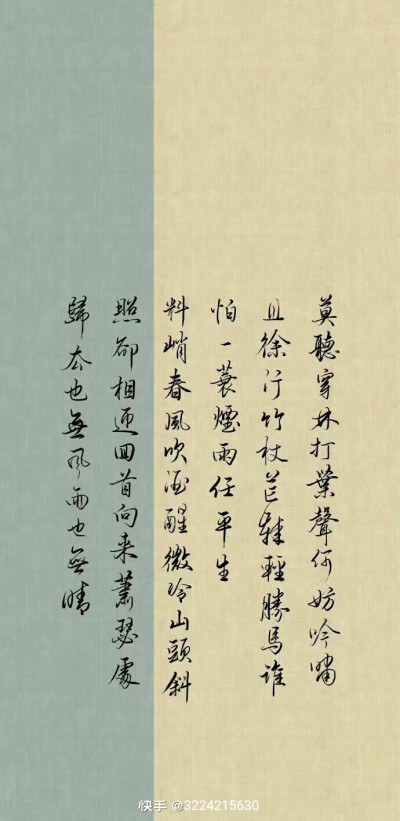 莫聽穿林打葉聲何妨吟嘯
且徐行竹杖芒鞋輕勝馬誰
怕一蓑煙雨任平生
料峭春風吹酒醒微冷山頭斜
照卻相迎回首向来蕭瑟處
歸去也無風雨也無晴
快手 @3224215630